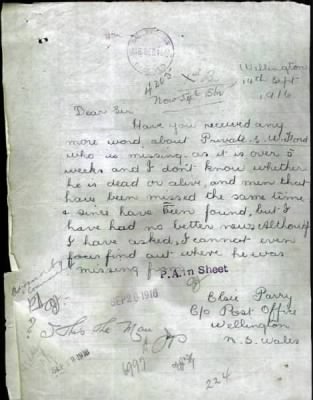 4203
Now 54th Bn
Wellington
14th Sept
1916
Dear Sir
Have you received any
more word about Private S. W. Ford
who is missing, as it is over 5
weeks and I don't know whether
he is dead or alive, and men that
have been missed the same time
& since have been found, but I
have had no better news Although
I have asked, I cannot even
find out where he was
missing from
P.A. in Sheet
SEP 26 1916
Elsie Parry
C/o Post Office
Wellington
N. S. Wales
? Is this the Man
6997
224